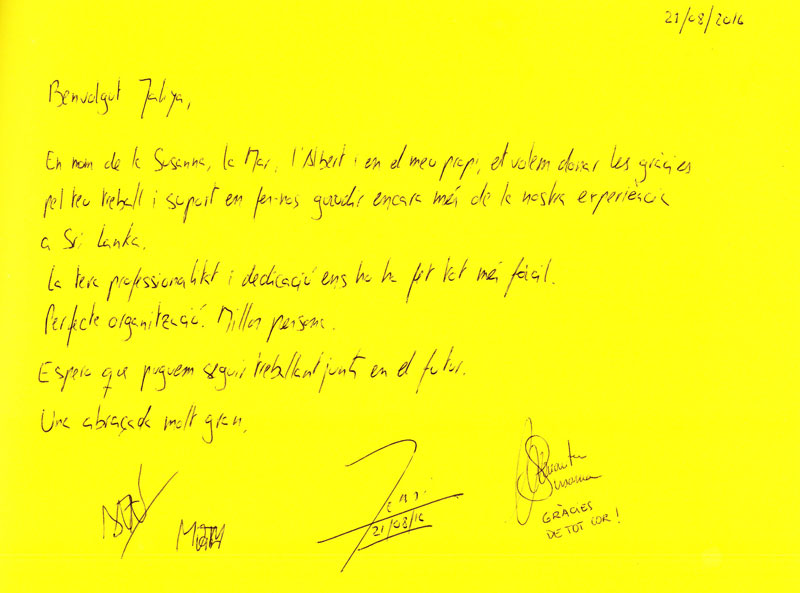 21/08/2016
Benvolgut Jaliya,
En nom de la Susanna, la Mar, l'Albert i en el meu propi, et volem donar les gràcies
pel teu treball i suport en fer-nos gaudir encara més de la nostra experiència
a Sri Lanka.
La teva professionalitat i dedicació ens ho ha fet tot més fàcil.
Perfecte organització. Millor persona.
Espero que puguem seguir treballant junts en el futur.
Una abraçada molt gran,
21/08/16
Susanna
GRÀCIES
DE TOT COR!